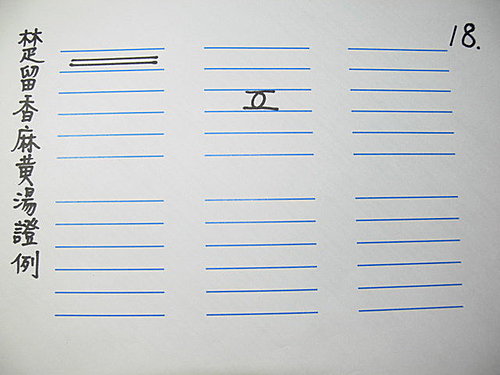 楚留香麻黄湯證例
18.